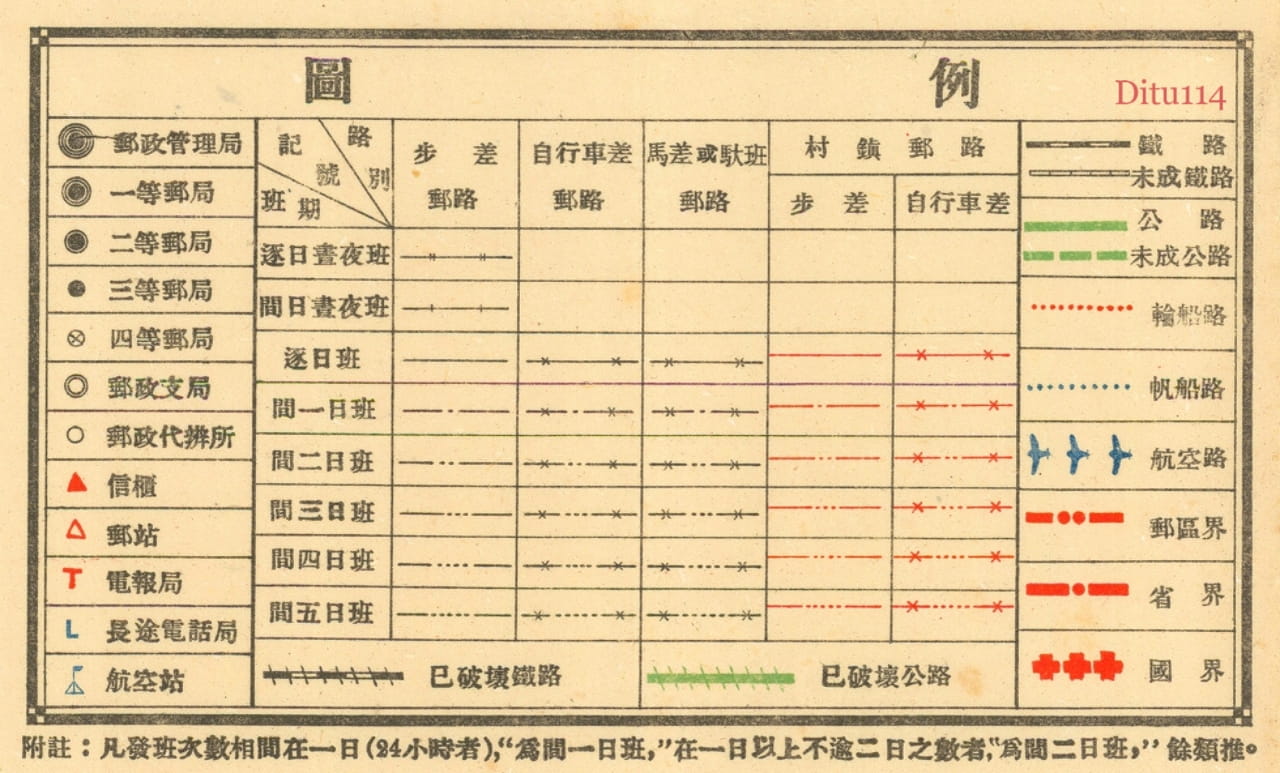 圖 例
Ditu114
郵政管理局
一等郵局
二等郵局
三等郵局
四等郵局
郵政支局
郵政代辦所
信櫃
郵站
T 電報局
L 長途電話局
航空站
記號
路別
班期
步差郵路
自行車差郵路
馬差或馱班郵路
村鎮郵路
步差
自行車差
逐日晝夜班
間日晝夜班
逐日班
間一日班
間二日班
間三日班
間四日班
間五日班
已破壞鐵路
已破壞公路
鐵路
未成鐵路
公路
未成公路
輪船路
帆船路
航空路
郵區界
省界
國界
附註：凡發班次數相間在一日(24小時者),“爲間一日班,”在一日以上不逾二日之數者,“爲間二日班,”餘類推。